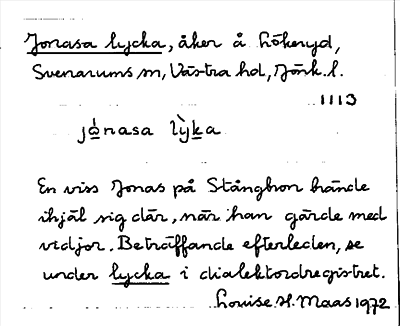 Jonasa lycka, åker å Hökeryd,
Svenarums sn, Västra hd, Jönk. l.
1113
jònasa lỳka
En viss Jonas på Stånghon hände
ihjäl sig där, när han gärde med
vidjor. Beträffande efterleden, se
under lycka i dialektordregistret.
Louise H. Maas 1972